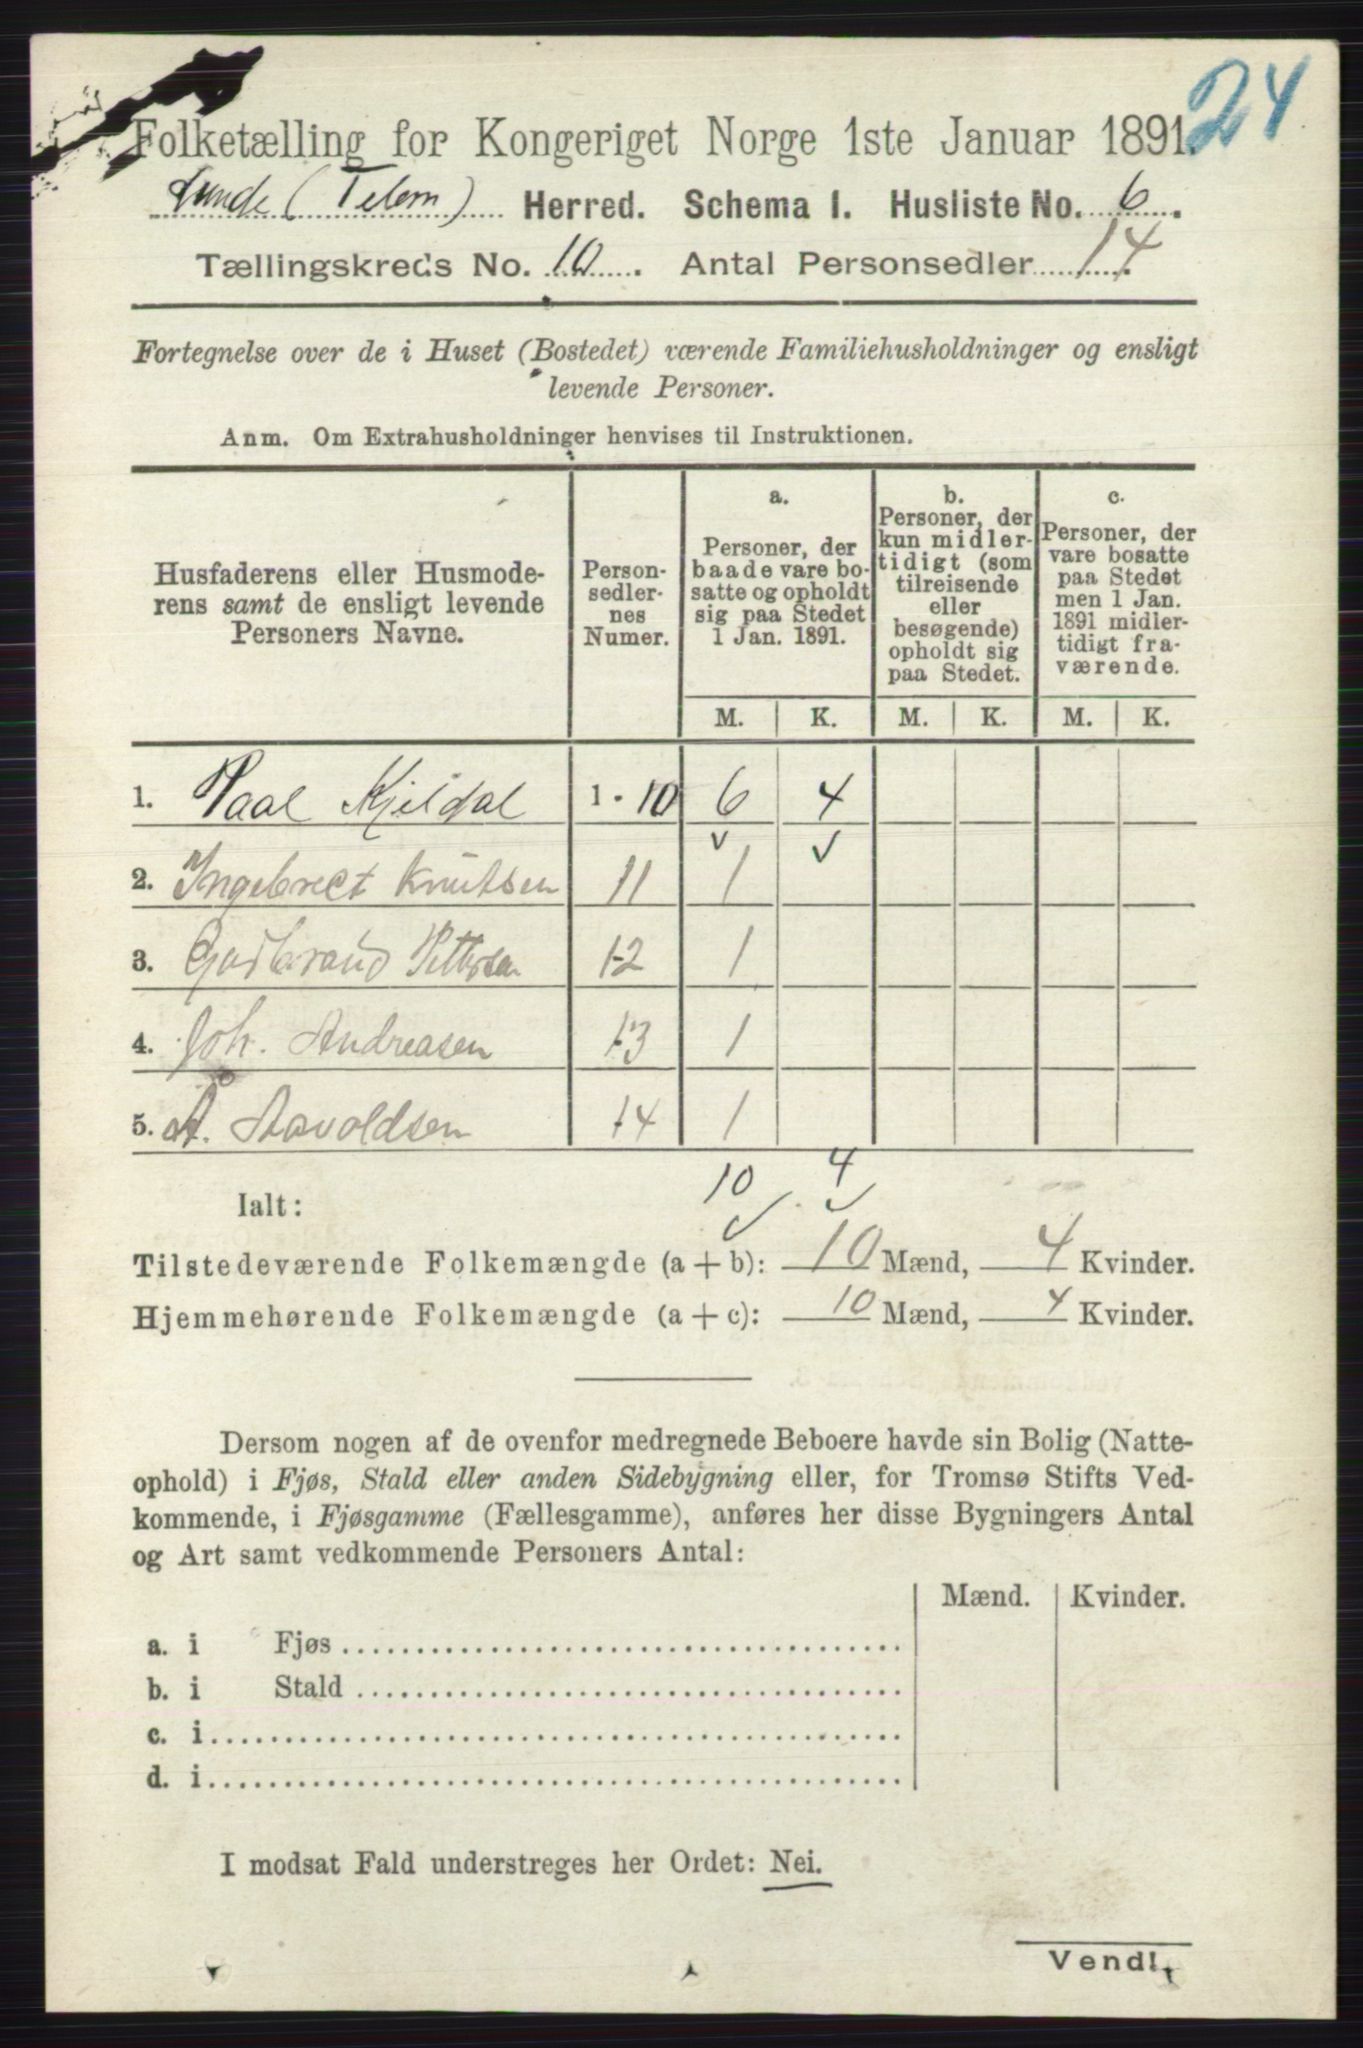 24
Folketælling for Kongeriget Norge 1ste Januar 1891.
Lunde (Telem) Herred. Schema 1. Husliste No. 6.
Tællingskreds No. 10. Antal Personsedler 14.
Fortegnelse over de i Huset (Bostedet) værende Familiehusholdninger og ensligt
levende Personer.
Anm. Om Extrahusholdninger henvises til Instruktionen.
Husfaderens eller Husmode-
rens samt de ensligt levende
Personers Navne.
Person-
sedler-
nes
Numer.
a.
Personer, der
baade vare bo-
satte og opholdt
sig paa Stedet
1 Jan. 1891.
b.
Personer, der
kun midler-
tidigt (som
tilreisende
eller
besøgende)
opholdt sig
paa Stedet.
c.
Personer, der
vare bosatte
paa Stedet
men 1 Jan.
1891 midler-
tidigt fra-
værende.
M. K. M. K. M. K.
1. Paal Kjeldal 1 - 10 6 4
2. Ingebrect Knutsen 11 1
3. Gudbrand Pettersen 12 1
4. Joh. Andreasen 13 1
5. A. Aavoldsen 14 1
10 4
Ialt:
Tilstedeværende Folkemængde (a + b): 10 Mænd, 4 Kvinder.
Hjemmehørende Folkemængde (a + c): 10 Mænd, 4 Kvinder.
Dersom nogen af de ovenfor medregnede Beboere havde sin Bolig (Natte-
ophold) i Fjøs, Stald eller anden Sidebygning eller, for Tromsø Stifts Ved-
kommende, i Fjøsgamme (Fællesgamme), anføres her disse Bygningers Antal
og Art samt vedkommende Personers Antal:
Mænd. Kvinder.
a. i Fjøs
b. i Stald
c. i
d. i
I modsat Fald understreges her Ordet: Nei.
Vend!